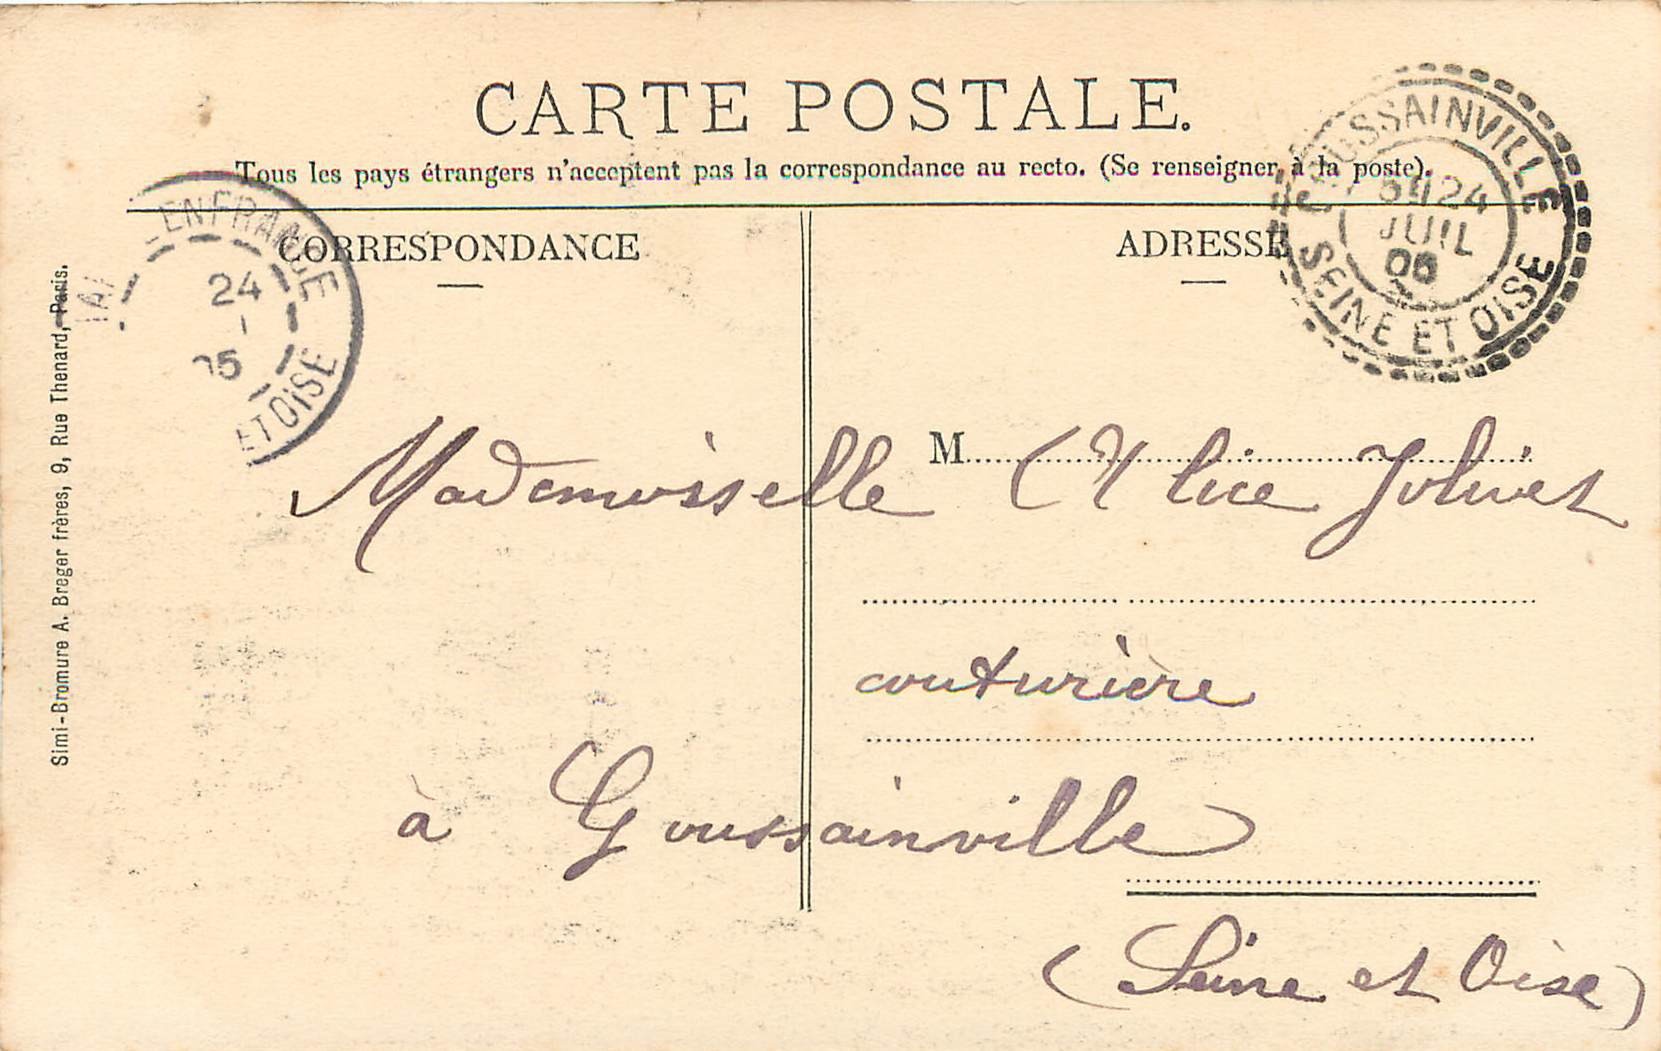 CARTE POSTALE.
Tous les pays étrangers n'acceptent pas la correspondance au recto. (Se renseigner, à la poste).
CORRESPONDANCE
ADRESSE
EN FRANCE
24
05
ET OISE
GOUSSAINVILLE
24
JUIL
05
SEINE ET OISE
Simi-Bromure A. Breger frères, 9, Rue Thenard, Paris.
M
Mademoisselle Alice Joliet
couturière
à Goussainville
(Seine et Oise)